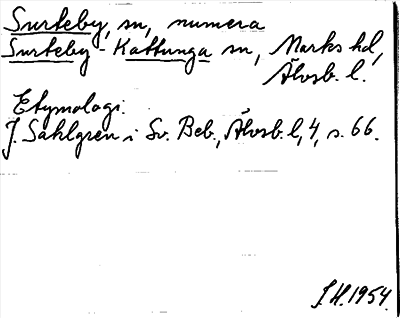 Surteby, sn, numera
Surteby-Kattunga sn, Marks hd,
Älvsb. l.
Etymologi.
J. Sahlgren i Sv. Beb., Älvsb. l, 4, s. 66.
J.H. 1954.